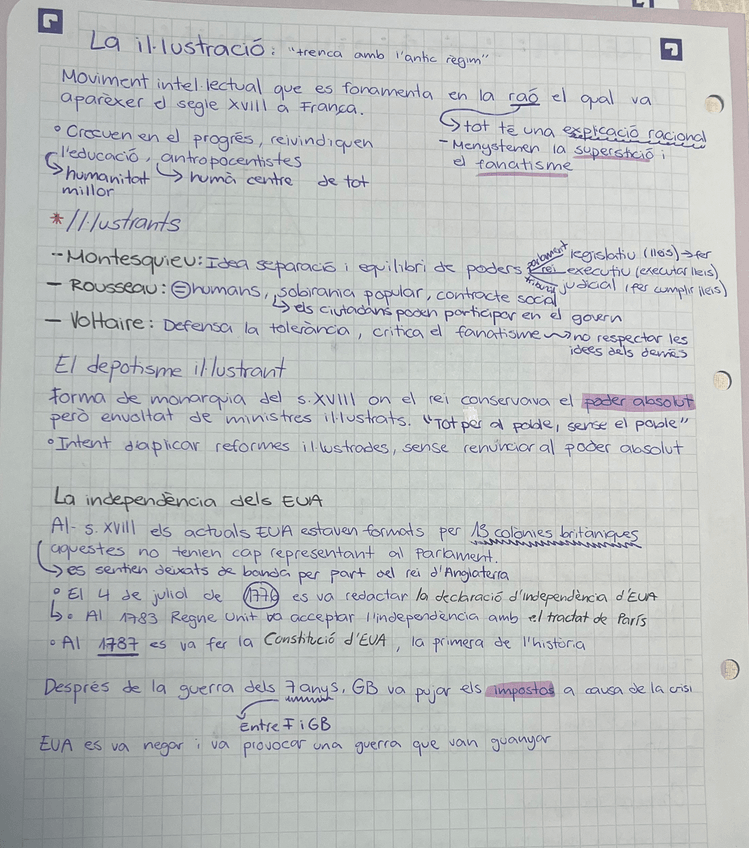 La il·lustració: "trenca amb l'antic règim"
Moviment intel·lectual que es fonamenta en la raó el qual va
aparèxer el segle XVIII a França.
↳ tot té una explicació racional
- Menystenen la superstició i
el fanatisme
° Creeuen en el progrés, reivindiquen
l'educació, antropocentistes
↳ humanitat millor ↳ humà centre de tot
* Il·lustrants
- Montesquieu: Idea separació i equilibri de poders
parlament legislatiu (lleis) → fer
rei executiu (executar lleis)
judicial (fer cumplir lleis)
- Rousseau: = humans, sobirania popular, contracte social
↳ els ciutadans poden participar en el govern
- Voltaire: Defensa la tolerància, critica el fanatisme → no respectar les
idees dels demés
El depotisme il·lustrant
Forma de monarquia del s. XVIII on el rei conservava el poder absolut
però envoltat de ministres il·lustrats. "Tot per al poble, sense el poble"
° Intent d'aplicar reformes il·lustrades, sense renunciar al poder absolut
La independència dels EUA
Al s. XVIII els actuals EUA estaven formats per 13 colònies britàniques
aquestes no tenien cap representant al Parlament.
↳ es sentien deixats de banda per part del rei d'Anglaterra
° El 4 de juliol de 1776 es va redactar la declaració d'independència d'EUA
↳ ° Al 1783 Regne Unit va acceptar l'independència amb el tractat de París
° Al 1787 es va fer la Constitució d'EUA, la primera de l'història
Desprès de la guerra dels 7 anys, GB va pujar els impostos a causa de la crisi
Entre F i GB
EUA es va negar i va provocar una guerra que van guanyar